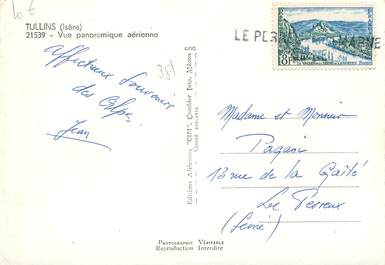 10 €
TULLINS (Isère)
21539 - Vue panoramique aérienne
38f
Affectueux souvenir
des Alpes
Jean
Editions Aériennes "CIM", Combier Imp. Mâcon
LE PER MARNE
8F
Madame et Monsieur
Pagan
13 rue de la Gaîté
Le Perreux
(Seine)
PHOTOGRAPHIE VÉRITABLE
Reproduction Interdite